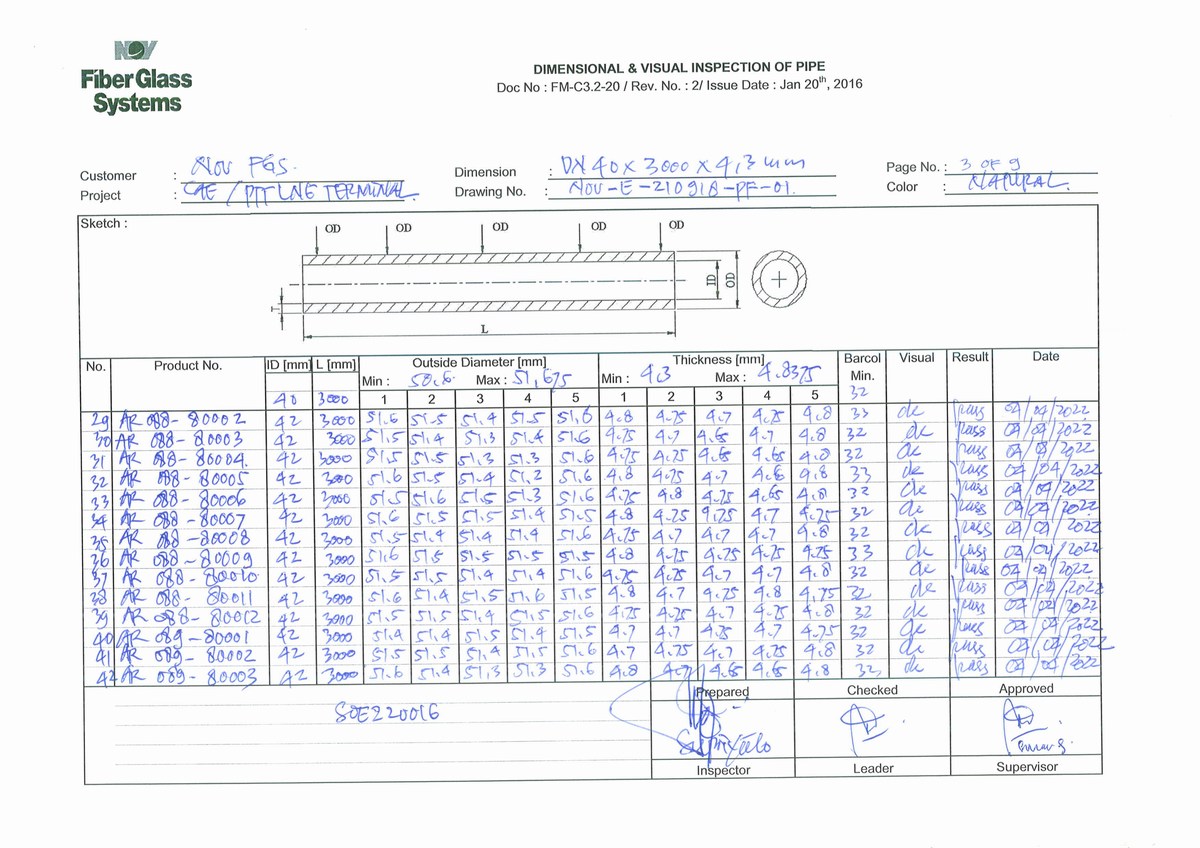 NOV
Fiber Glass
Systems
DIMENSIONAL & VISUAL INSPECTION OF PIPE
Doc No : FM-C3.2-20 / Rev. No. : 2/ Issue Date : Jan 20th, 2016
Customer : NOV FGS.
Dimension : DN 40 x 3000 x 4,3 mm
Page No. : 3 OF 9
Project : CAE / PTT LNE TERMINAL
Drawing No. : NOV-E-210918-PF-01.
Color : NATURAL.
Sketch :
OD OD OD OD OD
ID OD
T
L
No. Product No. ID [mm] L [mm] Outside Diameter [mm] Thickness [mm] Barcol Min. Visual Result Date
Min : 50.6 Max : 51,675 Min : 4.3 Max : 4.8375 32
40 3000 1 2 3 4 5 1 2 3 4 5
29 AR 088-80002 42 3000 51.6 51.5 51.4 51.5 51.6 4.8 4.75 4.7 4.75 4.8 33 ok pass 04/04/2022
30 AR 088-80003 42 3000 51.5 51.4 51.3 51.4 51.6 4.75 4.7 4.65 4.7 4.8 32 ok pass 04/04/2022
31 AR 088-80004. 42 3000 51.5 51.5 51.3 51.3 51.6 4.75 4.75 4.65 4.65 4.8 32 ok pass 04/04/2022
32 AR 088-80005 42 3000 51.6 51.5 51.4 51.2 51.6 4.8 4.75 4.7 4.6 4.8 33 ok pass 04/04/2022
33 AR 088-80006 42 3000 51.5 51.6 51.5 51.3 51.6 4.75 4.8 4.75 4.65 4.8 32 ok pass 04/04/2022
34 AR 088-80007 42 3000 51.6 51.5 51.5 51.4 51.5 4.8 4.75 4.75 4.7 4.75 32 ok pass 04/04/2022
35 AR 088-80008 42 3000 51.5 51.4 51.4 51.4 51.6 4.75 4.7 4.7 4.7 4.8 32 ok pass 04/04/2022
36 AR 088-80009 42 3000 51.6 51.5 51.5 51.5 51.5 4.8 4.75 4.75 4.75 4.75 33 ok pass 04/04/2022
37 AR 088-80010 42 3000 51.5 51.5 51.4 51.4 51.6 4.75 4.75 4.7 4.7 4.8 32 ok pass 04/04/2022
38 AR 088-80011 42 3000 51.6 51.4 51.5 51.6 51.5 4.8 4.7 4.75 4.8 4.75 32 ok pass 04/04/2022
39 AR 088-80012 42 3000 51.5 51.5 51.4 51.5 51.6 4.75 4.75 4.7 4.75 4.8 32 ok pass 04/04/2022
40 AR 089-80001 42 3000 51.4 51.4 51.5 51.4 51.5 4.7 4.7 4.75 4.7 4.75 32 ok pass 04/04/2022
41 AR 089-80002 42 3000 51.5 51.5 51.4 51.5 51.6 4.7 4.75 4.7 4.75 4.8 32 ok pass 04/04/2022
42 AR 089-80003 42 3000 51.6 51.4 51.3 51.3 51.6 4.8 4.7 4.65 4.65 4.8 32 ok pass 04/04/2022
SOE220016
Prepared Checked Approved
Inspector Leader Supervisor